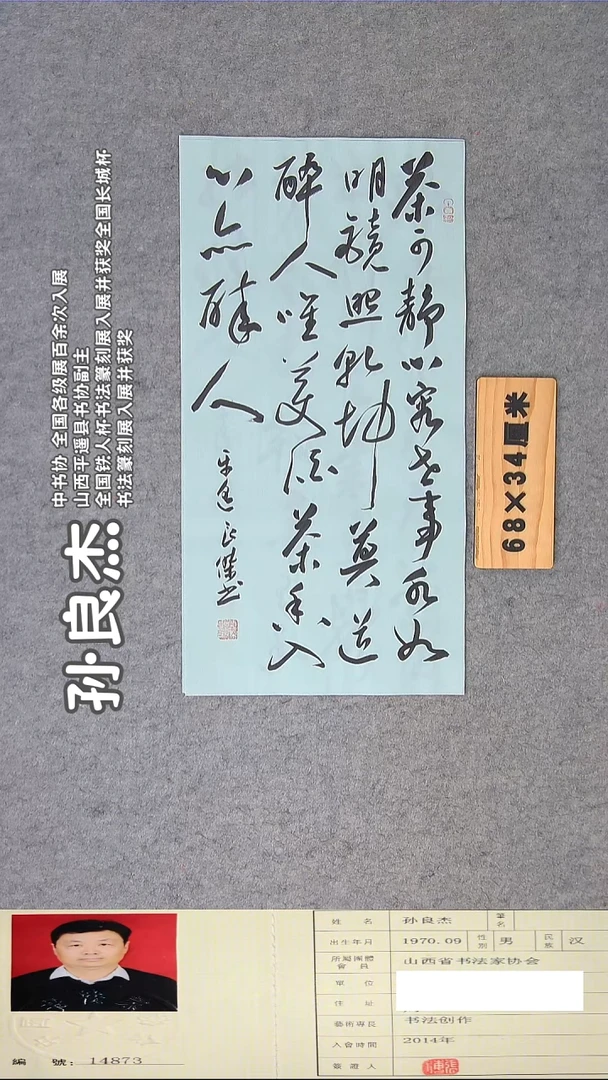 茶可静心容世事水如
明鏡照乾坤莫道
醉人唯美酒茶香入
心亦醉人
平遥良傑书
68×34厘米
中书协 全国各级展百余次入展
山西平遥县书协副主
全国铁人杯书法篆刻展入展并获奖全国长城杯
书法篆刻展入展并获奖
孙良杰
姓名 孙良杰 筆名
出生年月 1970.09 性別 男 民族 汉
所屬團體會員 山西省书法家协会
單位
住址
藝術專長 书法创作
入會時間 2014年
簽證人
編號：14873